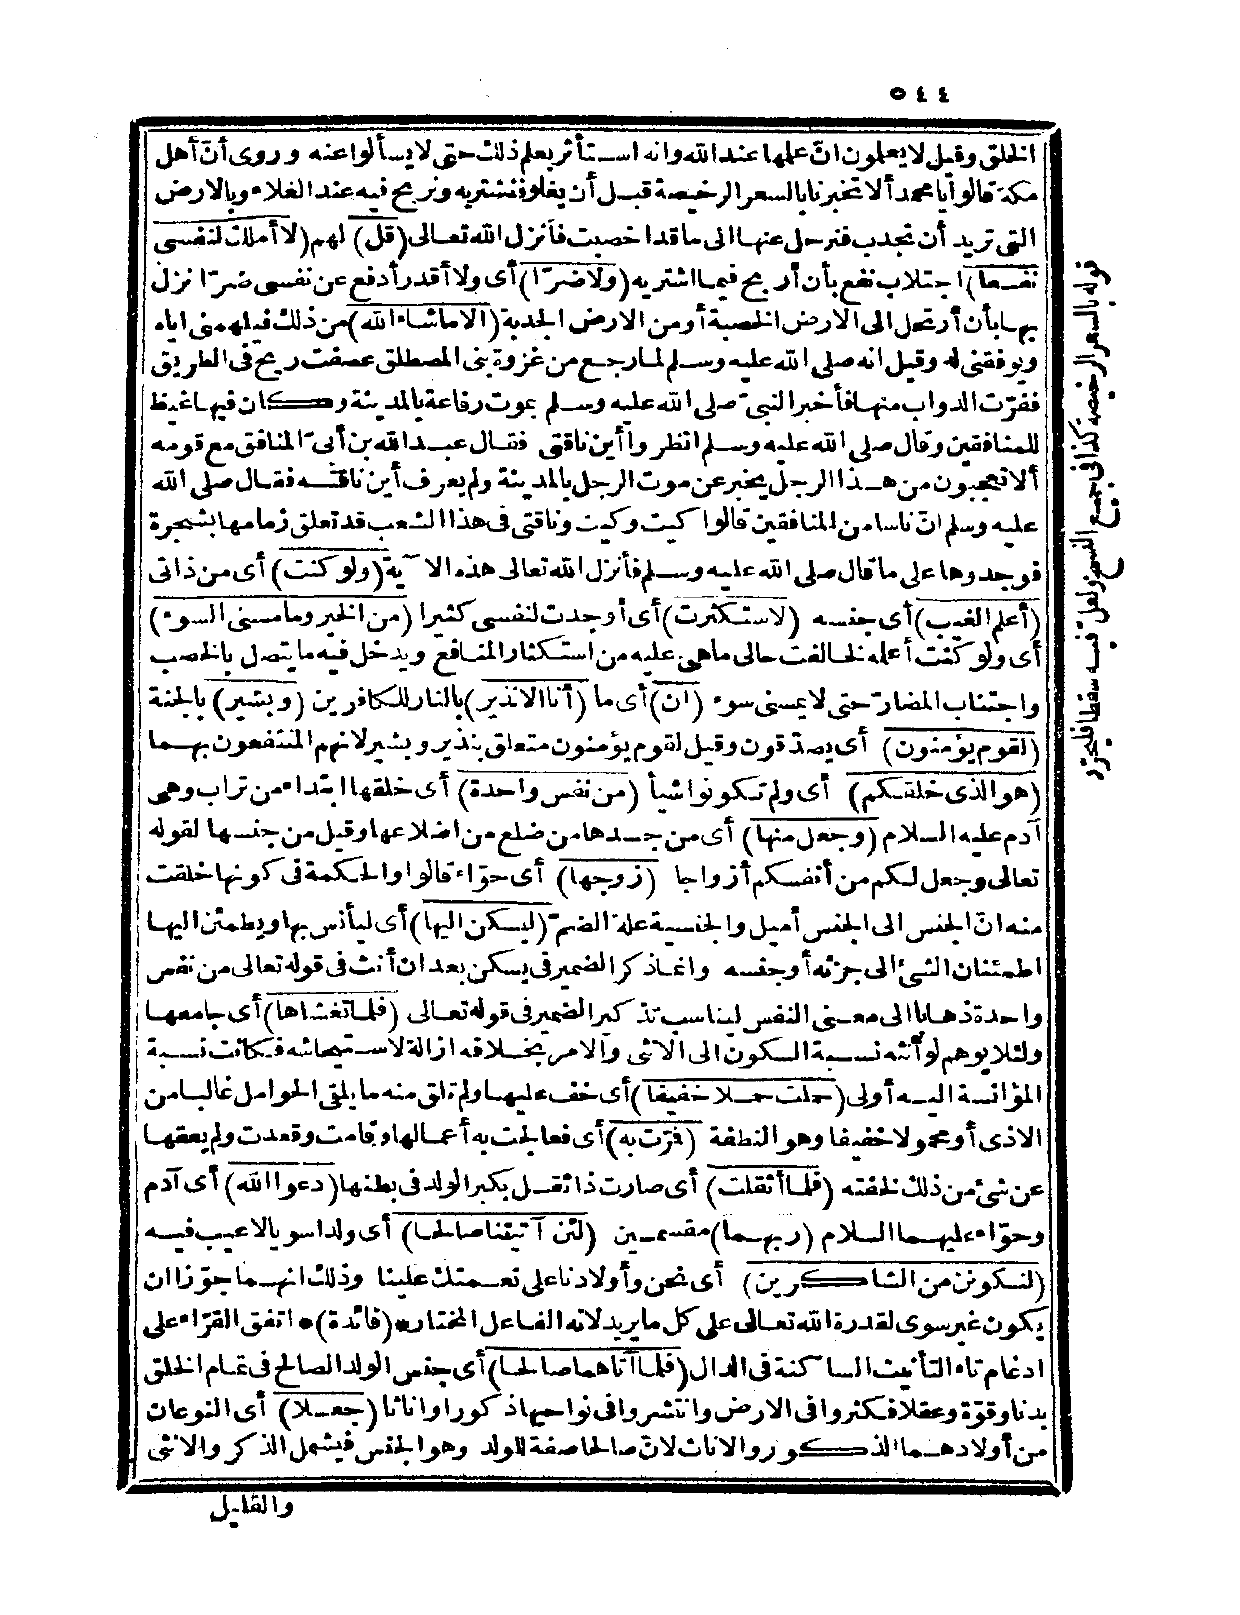 ٥٤٤
الخلق وقيل لا يعلمون انّ علمها عند الله وانه استأثر بعلم ذلك حتى لا يسألوا عنه وروى أنّ أهل
مكة قالوا يا محمد ألا تخبرنا بالسعر الرخيصة قبل أن يغلو فنشتريه ونربح فيه عند الغلاء وبالارض
التى تريد أن تجدب فنرحل عنها الى ما قد اخصبت فأنزل الله تعالى (قل) لهم (لا أملك لنفسى
نفعا) اجتلاب نفع بأن أربح فيما اشتريه (ولا ضرّا) أى ولا أقدر أدفع عن نفسى ضرّا نزل
بها بأن أرتحل الى الارض الخصبة أو من الارض الجدبة (الا ما شاء الله) من ذلك فيلهمنى اياه
ويوفقنى له وقيل انه صلى الله عليه وسلم لما رجع من غزوة بنى المصطلق عصفت ريح فى الطريق
ففرّت الدواب منها فأخبر النبىّ صلى الله عليه وسلم بموت رفاعة بالمدينة وكان فيها غيظ
للمنافقين وقال صلى الله عليه وسلم انظروا أين ناقتى فقال عبد الله بن أبىّ المنافق مع قومه
ألا تعجبون من هذا الرجل يخبر عن موت الرجل بالمدينة ولم يعرف أين ناقته فقال صلى الله
عليه وسلم انّ ناسا من المنافقين قالوا كيت وكيت وناقتى فى هذا الشعب قد تعلق زمامها بشجرة
فوجدوها على ما قال صلى الله عليه وسلم فأنزل الله تعالى هذه الآية (ولو كنت) أى من ذاتى
(أعلم الغيب) أى جنسه (لاستكثرت) أى أوجدت لنفسى كثيرا (من الخير وما مسنى السوء)
أى ولو كنت أعلمه لخالفت حالى ما هى عليه من استكثار المنافع ويدخل فيه ما يتصل بالخصب
واجتناب المضارّ حتى لا يمسنى سوء (ان) أى ما (أنا الا نذير) بالنار للكافرين (وبشير) بالجنة
(لقوم يؤمنون) أى يصدّقون وقيل لقوم يؤمنون متعلق بنذير وبشير لانهم المنتفعون بهما
(هو الذى خلقكم) أى ولم تكونوا شيأ (من نفس واحدة) أى خلقها ابتداء من تراب وهى
آدم عليه السلام (وجعل منها) أى من جسدها من ضلع من اضلاعها وقيل من جنسها لقوله
تعالى وجعل لكم من أنفسكم أزواجا (زوجها) أى حوّاء قالوا والحكمة فى كونها خلقت
منه انّ الجنس الى الجنس أميل والجنسية علة الضمّ (ليسكن اليها) أى ليأنس بها ويطمئن اليها
اطمئنان الشئ الى جزئه أو جنسه وانما ذكر الضمير فى يسكن بعد ان أنث فى قوله تعالى من نفس
واحدة ذهابا الى معنى النفس ليناسب تذكير الضمير فى قوله تعالى (فلما تغشاها) أى جامعها
ولئلا يوهم لو أنثه نسبة السكون الى الانثى والامر بخلافه ازالة لاستيحاشه فكانت نسبة
المؤانسة اليه أولى (حملت حملا خفيفا) أى خف عليها ولم تلق منه ما يلقى الحوامل غالبا من
الاذى أو محمولا خفيفا وهو النطفة (فمرّت به) أى فعالجت به أعمالها وقامت وقعدت ولم يعقها
عن شئ من ذلك لخفته (فلما أثقلت) أى صارت ذا ثقل بكبر الولد فى بطنها (دعوا الله) أى آدم
وحوّاء عليهما السلام (ربهما) مقسمين (لئن آتيتنا صالحا) أى ولدا سويا لا عيب فيه
(لنكونن من الشاكرين) أى نحن وأولادنا على نعمتك علينا وذلك انهما جوّزا ان
يكون غير سوى لقدرة الله تعالى على كل ما يريد لانه الفاعل المختار *(فائدة)* اتفق القرّاء على
ادغام تاء التأنيث الساكنة فى الدال (فلما آتاهما صالحا) أى جنس الولد الصالح فى تمام الخلق
بدنا وقوّة وعقلا فكثروا فى الارض وانتشروا فى نواحيها ذكورا واناثا (جعلا) أى النوعان
من أولادهما الذكور والاناث لانّ صالحا صفة للولد وهو الجنس فيشمل الذكر والانثى
والقليل
قوله بالسعر الرخيصة كذا فى جميع النسخ ولعل فيه سقطا فليحرّر